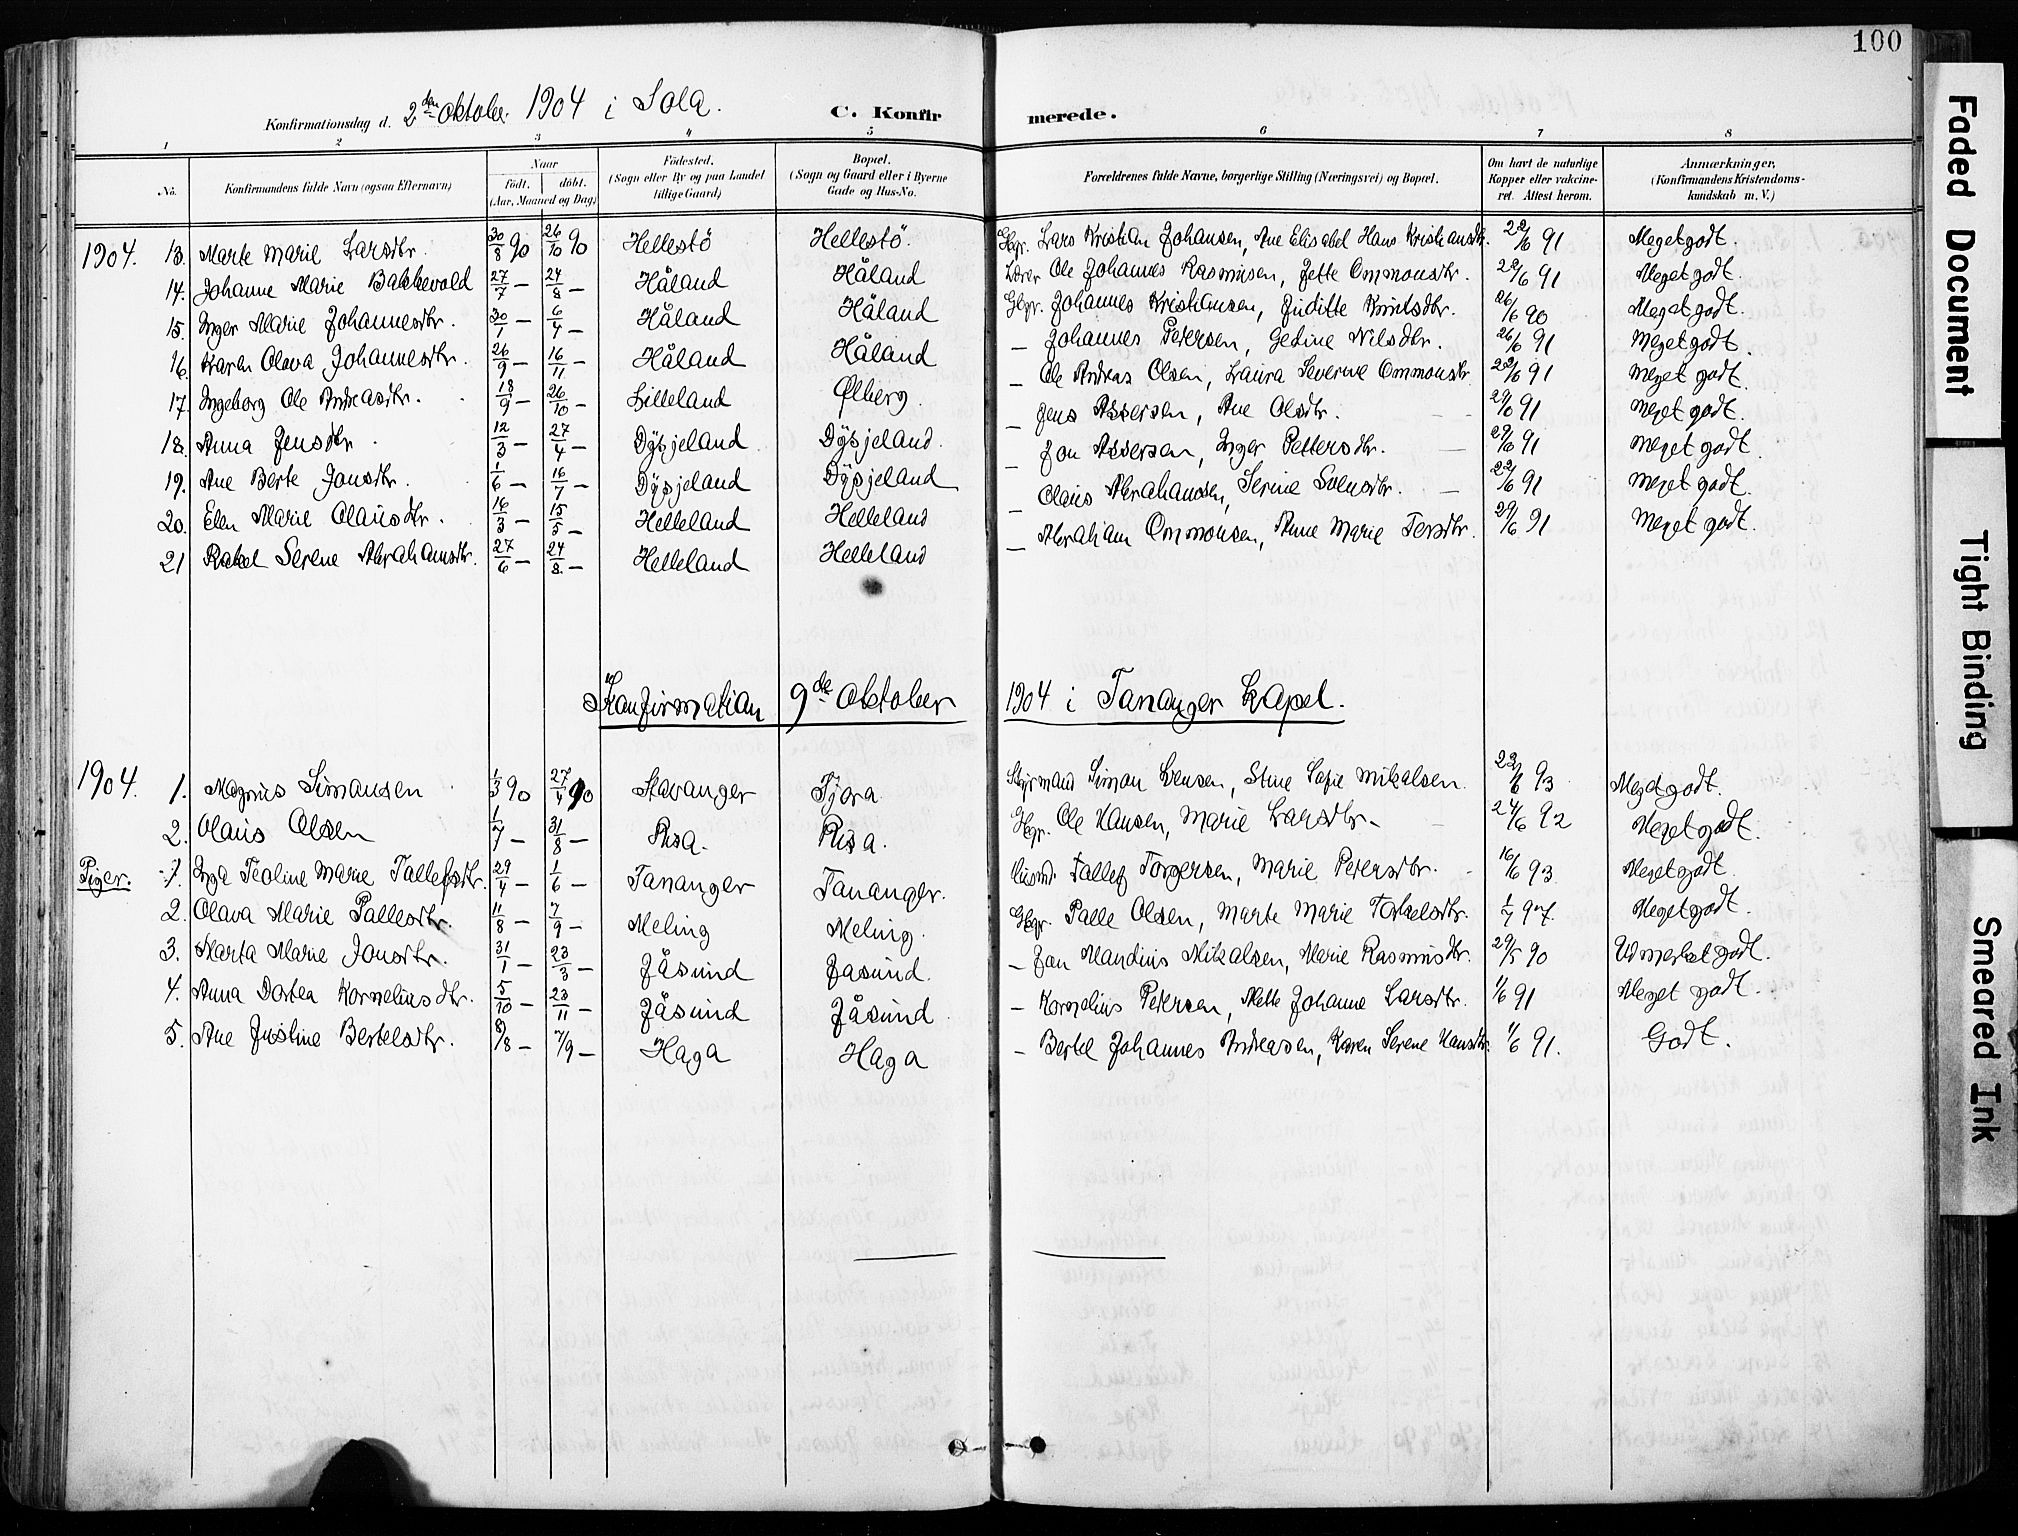 100
Konfirmationsdag d. 2den Oktober 1904 i Sola. C. Konfirmerede.
1 2 3 4 5 6 7 8
No. Konfirmandens fulde Navn (ogsaa Efternavn) Naar født. døbt. (Aar, Maaned og Dag) Fødested. (Sogn eller By og paa Landet tillige Gaard) Bopæl. (Sogn og Gaard eller i Byerne Gade og Hus-No. Forældrenes fulde Navne, borgerlige Stilling (Næringsvei) og Bopæl. Om havt de naturlige Kopper eller vakcineret. Attest herom. Anmærkninger, (Konfirmandens Kristendomskundskab m. V.)
1904. 13. Marte Marie Larsdtr. 30/8 90 26/10 90 Hellestö Hellestö. Gbgr. Lars Kristian Johansen, Ane Elisabet Hans Kristiansdtr. 22/6 91 Meget godt.
14. Johanne Marie Bakkevold 27/7 — 24/8 — Håland Håland Lærer Ole Johannes Rasmusen, Jette Ommonsdtr. 22/6 91 Meget godt.
15. Inger Marie Johannesdtr. 30/1 — 6/4 — Håland Håland Gbgr. Johannes Kristiansen, Juditte Knutsdtr. 26/6 90 Meget godt.
16. Karen Olava Johannesdtr. 26/9 — 16/11 Håland Håland — Johannes Petersen, Gedine Nilsdtr. 26/6 91 Meget godt.
17. Ingeborg Ole Andreasdtr. 18/9 — 26/10 — Lilleland Ølberg. — Ole Andreas Olsen, Laura Severine Ommonsdtr. 22/6 91 Meget godt.
18. Anna Jensdtr. 12/3 — 27/4 — Dysjeland Dysjeland. — Jens Assersen, Ane Olsdtr. 29/6 91 Meget godt.
19. Ane Berte Jonsdtr. 1/6 — 16/7 — Dysjeland Dysjeland — Jon Assersen, Inger Pettersdtr. 29/6 91 Meget godt.
20. Elen Marie Olausdtr. 16/3 — 15/5 — Helleland Helleland — Olaus Abrahamsen, Serine Svensdtr. 22/6 91 Meget godt.
21 Rakel Serene Abrahamsdtr. 27/6 — 24/8 — Helleland Helleland — Abraham Ommonsen, Anne Marie Tersdtr. 29/6 91 Meget godt.
Konfirmation 9de Oktober 1904 i Tananger Kapel.
1904. 1. Magnus Simonsen 1/3 90 27/4 90 Stavanger Tjora Styrmand Simon Svensen, Stine Sofie Mikalsen. 22/6 93 Meget godt.
2. Olaus Olsen 1/7 — 31/8 — Risa. Risa. Gbgr. Ole Hansen, Marie Larsdtr. 24/6 92 Meget godt.
Piger. 1. Inga Teoline Marie Tallefsdtr. 29/4 — 1/6 — Tananger Tananger. Husmd. Tallef Torgersen, Marie Petersdtr. 16/6 93 Meget godt.
2. Olava Marie Pallesdtr. 11/8 — 7/9 — Meling Meling. Gbgr. Palle Olsen, Marte Marie Torkelsdtr. Meget godt.
3. Marta Marie Jonsdtr. 31/1 — 23/3 — Jåsund Jasund. — Jon Mandius Mikalsen, Marie Rasmusdtr. 29/5 90 Udmerket godt.
4. Anna Dortea Korneliusdtr. 5/10 — 23/11 — Jåsund Jåsund — Kornelius Petersen, Mette Johanne Larsdtr. 1/6 91 Meget godt.
5. Ane Justine Bertelsdtr. 8/8 — 7/9 — Haga Haga — Bertel Johannes Andreasen, Karen Serene Hansdtr. 1/6 91. Godt.
Faded Document
Tight Binding
Smeared Ink